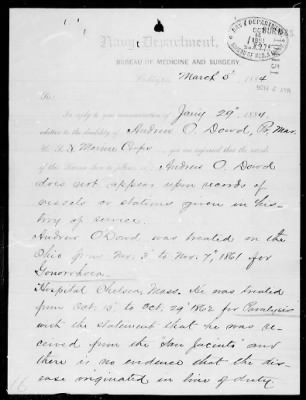 Navy Department,
BUREAU OF MEDICINE AND SURGERY
Washington, March 5" 1884
Sir:
In reply to your communication of Jan'y 29" 1884,
relative to the disability of Andrew O. Dowd, Pt. Mar.
U. S. Marine Corps you are informed that the record
of this Bureau is as follows: Andrew O. Dowd
does not appear upon records of
vessels or stations given in his-
tory of service.
Andrew O'Dowd was treated on the
Ohio from Nov. 3" to Nov. 7", 1861 for
Gonorrhoea.
Hospital Chelsea, Mass. He was treated
from Oct. 15" to Oct. 29" 1862 for Paralysis
with the statement that he was re-
ceived from the "San Jacinto" and
there is no evidence that the dis-
ease originated in line of duty.